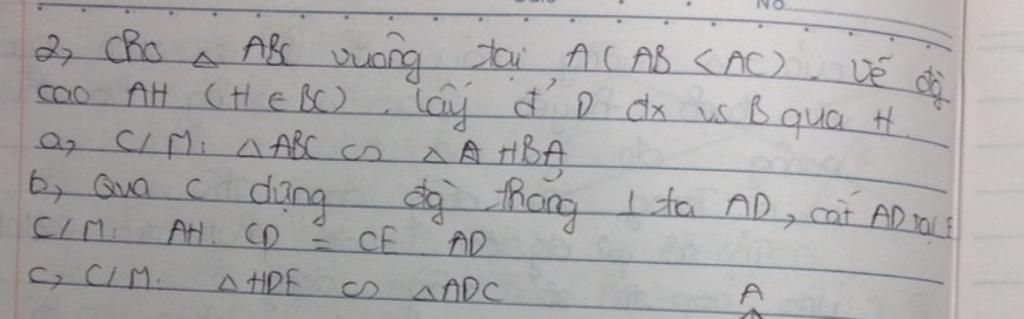 No
2, Cho △ ABC vuông tại A (AB < AC). Vẽ đg
cao AH (H ∈ BC). lấy đ' D đx vs B qua H.
a, C/M: △ABC ∽ △HBA
b, Qua C dựng đg thẳng ⊥ tia AD, cắt AD tại E
C/M: AH. CD = CE. AD
c, C/M. △HDE ∽ △ADC
A